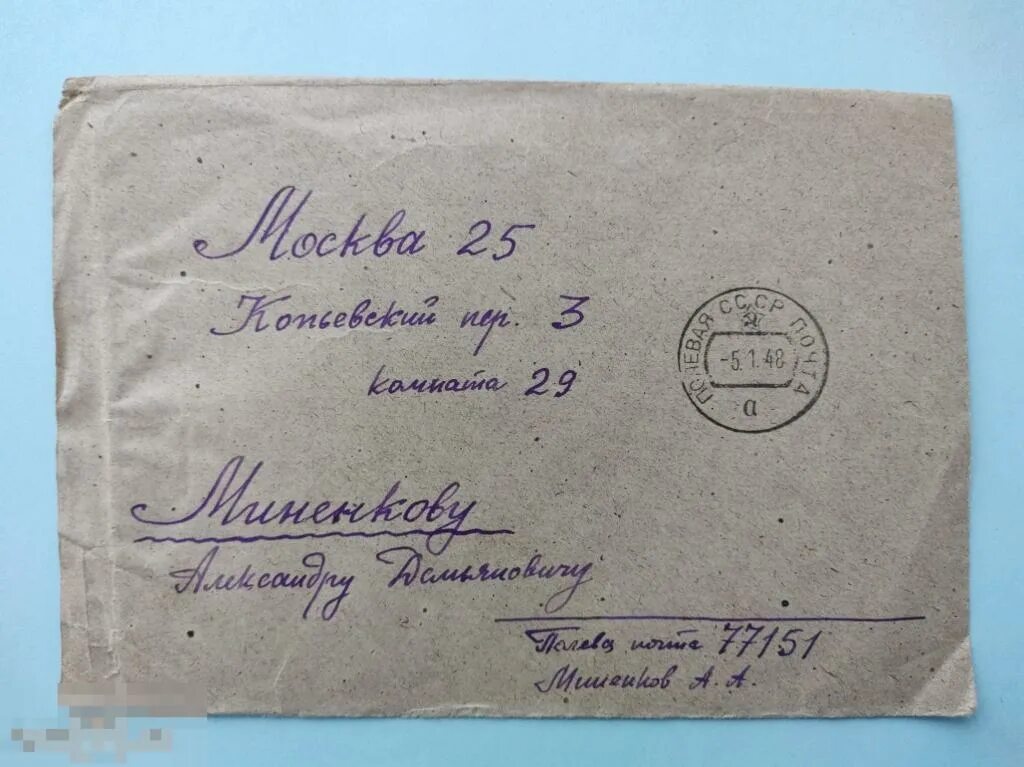 Москва 25
Копьевский пер. 3
комната 29
ПОЛЕВАЯ СССР ПОЧТА
-5.1.48
а
Миненкову
Александру Демьяновичу
Полева почта 77151
Миненков А. А.